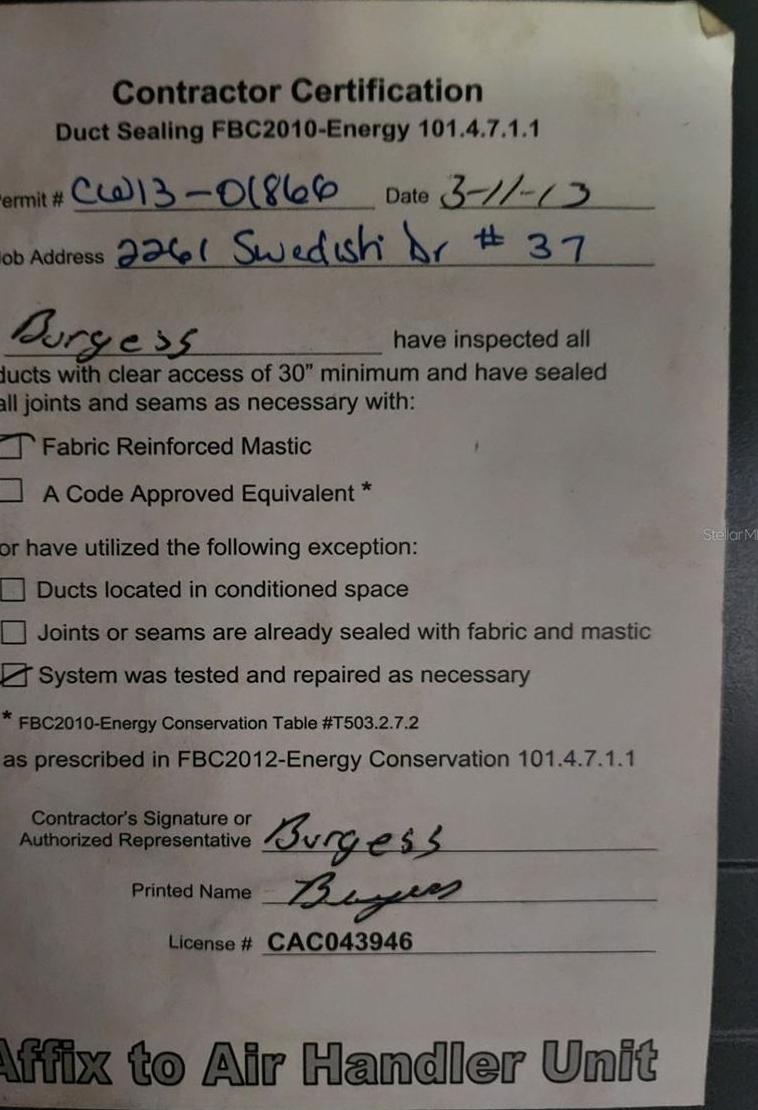 Contractor Certification
Duct Sealing FBC2010-Energy 101.4.7.1.1
ermit # CW13-01866 Date 3-11-13
ob Address 2261 Swedish Dr # 37
Burgess have inspected all
ducts with clear access of 30" minimum and have sealed
all joints and seams as necessary with:
Fabric Reinforced Mastic
A Code Approved Equivalent *
or have utilized the following exception:
Ducts located in conditioned space
Joints or seams are already sealed with fabric and mastic
System was tested and repaired as necessary
* FBC2010-Energy Conservation Table #T503.2.7.2
as prescribed in FBC2012-Energy Conservation 101.4.7.1.1
Contractor's Signature or
Authorized Representative Burgess
Printed Name Burgess
License # CAC043946
Affix to Air Handler Unit
StellarM